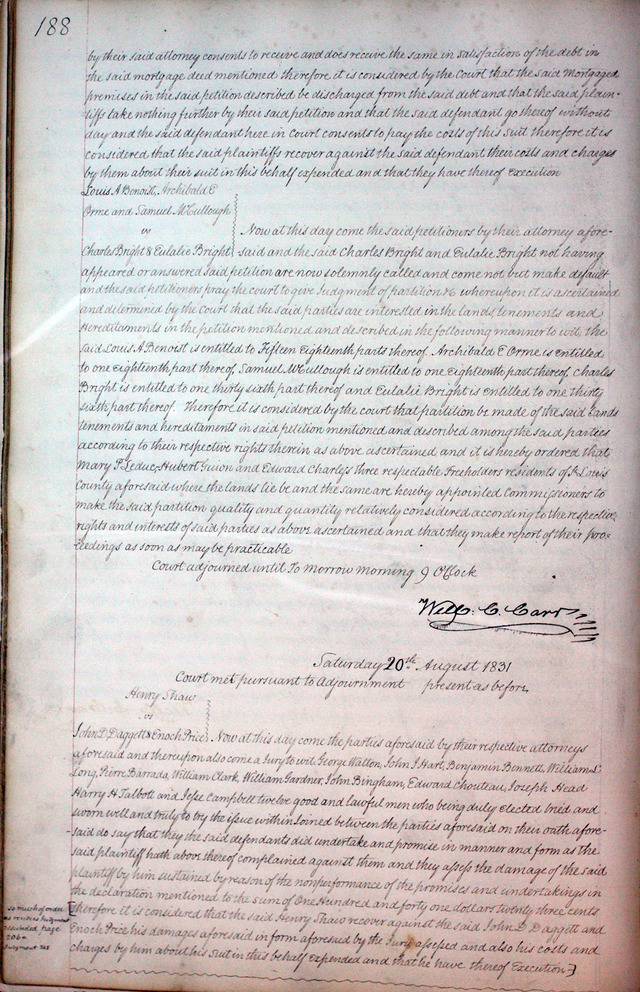 188
by their said attorney consents to receive and does receive the same in satisfaction of the debt in
the said mortgage deed mentioned therefore it is considered by the Court that the said Mortgaged
premises in the said petition described be discharged from the said debt and that the said plain-
tiffs take nothing further by their said petition and that the said defendant go thereof without
day and the said defendant here in Court consents to pay the costs of this suit therefore it is
considered that the said plaintiffs recover against the said defendant their costs and charges
by them about their suit in this behalf expended and that they have thereof Execution
Louis A Benoist, Archibald E
Orme and Samuel McCullough
vs
Charles Bright & Eulalie Bright
Now at this day come the said petitioners by their attorney afore-
said and the said Charles Bright and Eulalie Bright not having
appeared or answered said petition are now solemnly called and come not but make default
and the said petitioners pray the court to give Judgment of partition &c whereupon it is ascertained
and determined by the Court that the said parties are interested in the lands tenements and
Hereditaments in the petition mentioned and described in the following manner to wit, the
said Louis A Benoist is entitled to Fifteen Eighteenth parts thereof. Archibald E Orme is entitled
to one Eighteenth part thereof, Samuel McCullough is entitled to one Eighteenth part thereof, Charles
Bright is entitled to one thirty sixth part thereof and Eulalie Bright is entitled to one thirty
sixth part thereof. Therefore it is considered by the court that partition be made of the said Lands
tenements and hereditaments in said petition mentioned and described among the said parties
according to their respective rights therein as above ascertained and it is hereby ordered that
Mary P. Leduc, Hubert Guion and Edward Charles three respectable Freeholders residents of St Louis
County aforesaid where the lands lie be and the same are hereby appointed Commissioners to
make the said partition quality and quantity relatively considered according to the respective
rights and interests of said parties as above ascertained and that they make report of their pro-
ceedings as soon as may be practicable
Court adjourned until To morrow morning 9 OClock
Wilf. C. Carr
Saturday 20th August 1831
Court met pursuant to Adjournment present as before,
Henry Shaw
vs
John D Daggett & Enoch Price
Now at this day come the parties aforesaid by their respective attorneys
aforesaid and thereupon also come a Jury to wit, George Walton, John J Hart, Benjamin Bennett, William L
Long, Pierre Barrada, William Clark, William Gardner, John Bingham, Edward Chouteau, Joseph Head
Harry H Talbott and Jesse Campbell twelve good and lawful men who being duly Elected tried and
sworn well and truly to try the issue within Joined between the parties aforesaid on their oath afore-
said do say that they the said defendants did undertake and promise in manner and form as the
said plaintiff hath above thereof complained against them and they assess the damage of the said
plaintiff by him sustained by reason of the nonperformance of the promises and undertakings in
the declaration mentioned to the sum of One Hundred and forty one dollars twenty three cents
[therefore it is considered that the said Henry Shaw recover against the said John D Daggett and
Enoch Price his damages aforesaid in form aforesaid by the Jury assessed and also his costs and
charges by him about his suit in this behalf Expended and that he have thereof Execution]
so much of order
as renders Judgment
rescinded page
206
Judgment